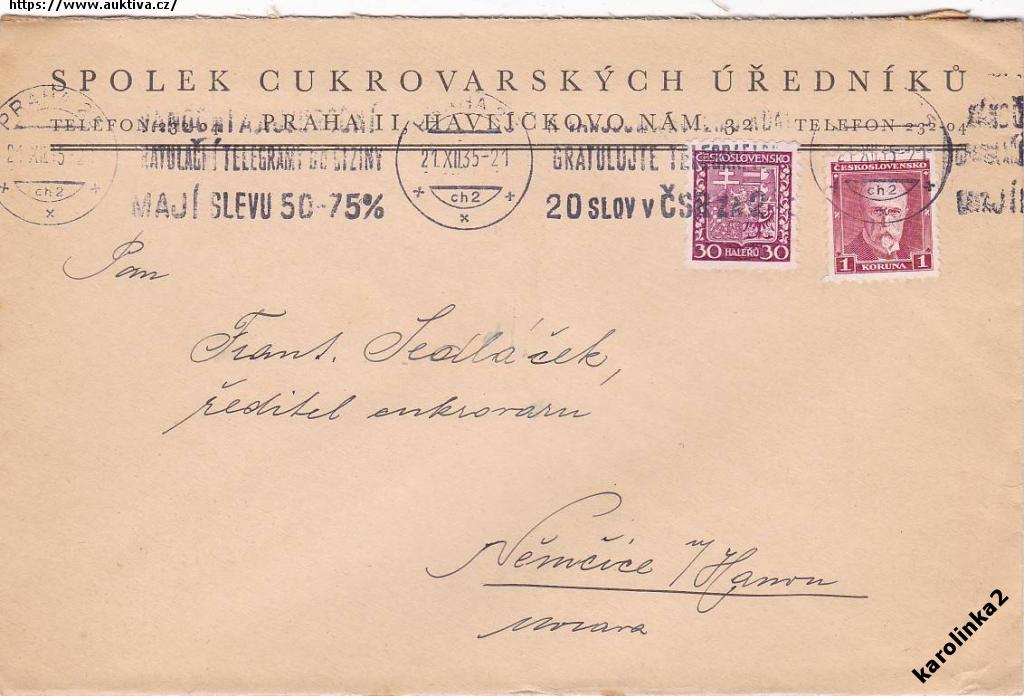 https://www.auktiva.cz/
SPOLEK CUKROVARSKÝCH ÚŘEDNÍKŮ
TELEFON 232-04 PRAHA II, HAVLÍČKOVO NÁM. 32. TELEFON 232-04
PRAHA
21.XII.35-2
ch2
TELEGRAMY DO CIZINY
MAJÍ SLEVU 50-75%
21.XII.35-21
ch2
GRATULUJTE
20 SLOV V ČSR ZA
ČESKOSLOVENSKO
30 HALÉŘŮ 30
21.XII.35-21
ch2
ČESKOSLOVENSKO
1 KORUNA 1
MAJÍ
Pan
Frant. Sedláček,
ředitel cukrovaru
Němčice n/Hanou
Morava
karolinka2